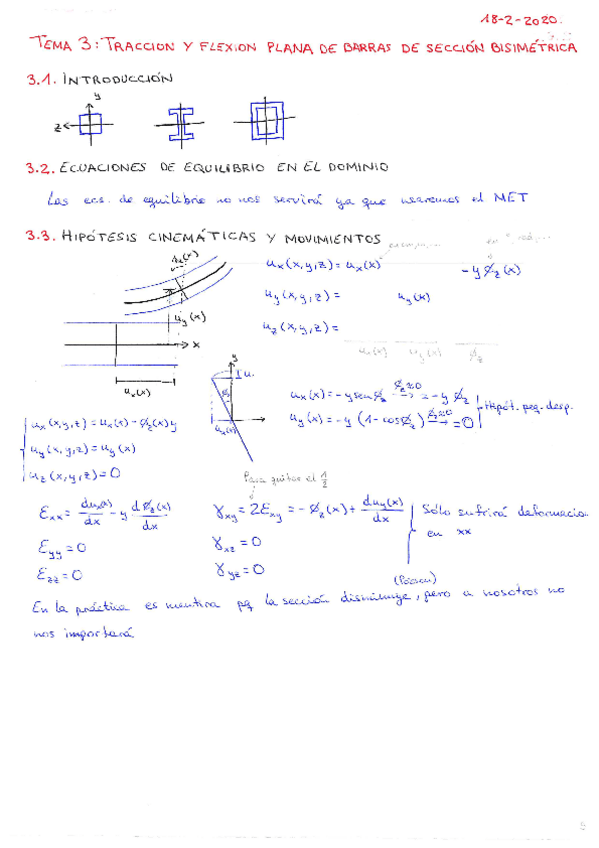 18-2-2020.
TEMA 3: TRACCION Y FLEXION PLANA DE BARRAS DE SECCIÓN BISIMÉTRICA
3.1. INTRODUCCIÓN
y
z
3.2. ECUACIONES DE EQUILIBRIO EN EL DOMINIO
Las ecs. de equilibrio no nos servirá ya que usaremos el MET
3.3. HIPÓTESIS CINEMÁTICAS Y MOVIMIENTOS
u_x(x,y,z) = u_x(x) - y ϕ_z(x)
u_y(x,y,z) = u_y(x)
u_z(x,y,z) =
u_x(x) u_y(x) ϕ_z
u_y(x)
x
u_x(x)
y
u_x(x) = -y sen ϕ_z ϕ_z≈0 → = -y ϕ_z
u_y(x) = -y (1-cosϕ_z) ϕ_z≈0 → = 0
Hipót. peq. desp.
u_x(x,y,z) = u_x(x) - ϕ_z(x)y
u_y(x,y,z) = u_y(x)
u_z(x,y,z) = 0
Para quitar el 1/2
ε_xx = du_x(x)/dx - y dϕ_z(x)/dx
γ_xy = 2ε_xy = -ϕ_z(x) + du_y(x)/dx
Sólo sufrirá deformación
en xx
ε_yy = 0
γ_xz = 0
ε_zz = 0
γ_yz = 0
(Poisson)
En la práctica es mentira pq la sección disminuye, pero a nosotros no
nos importará